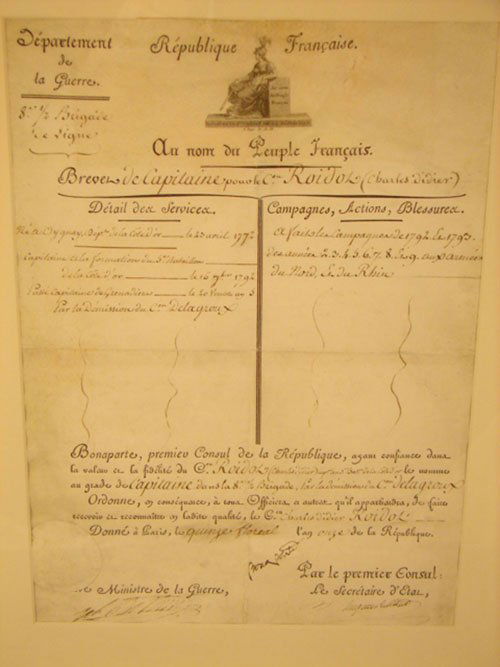 Département
de
la Guerre.
République Française.
8.e ½ Brigade
de Ligne
Au nom du Peuple Français.
Brevet de Capitaine pour le C.en Roidot (Charles Didier)
Détail des Services.
Né à Dép.t de la Côte d'or le 23 avril 1772
Capitaine à la formation du Bataillon
de la Côte d'or le 16 7bre 1792
Passé Capitaine de Grenadiers le 20 an 3
Par la démission du C.en Delagroux
Campagnes, Actions, Blessures.
A fait les Campagnes de 1792 et 1793
des années 2. 3. 4. 5. 6. 7. 8. et 9. aux armées
du Nord et du Rhin
Bonaparte, premier Consul de la République, ayant confiance dans
la valeur et la fidélité du C.en Roidot le nomme
au grade de Capitaine dans la 8.e ½ Brigade, par la démission du C.en Delagroux
Ordonne, en conséquence, à tous Officiers et autres qu'il appartiendra, de faire
recevoir et reconnaître en ladite qualité, le C.en Charles Didier Roidot
Donné à Paris, le quinze floréal l'an onze de la République.
Le Ministre de la Guerre,
Par le premier Consul:
Le Secrétaire d'État,